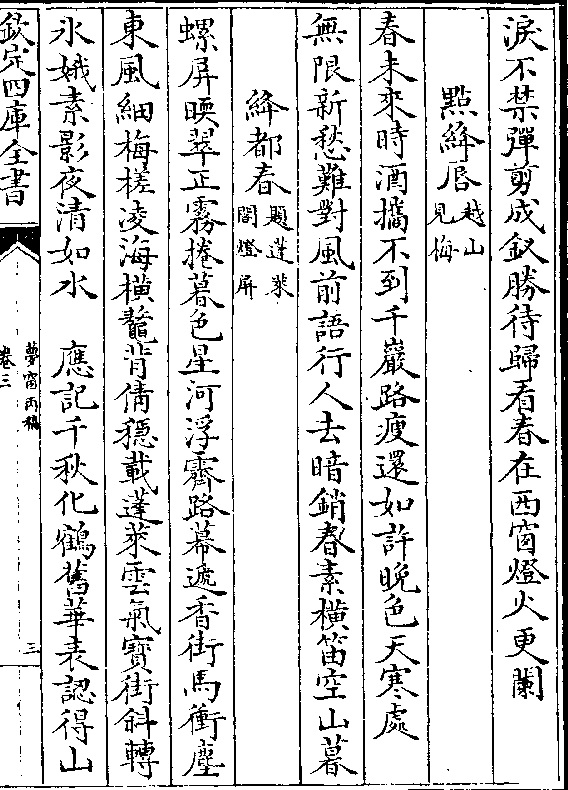 淚不禁彈剪成釵勝待歸看春在西窗燈火更闌
點絳唇 越山
見梅
春未來時酒攜不到千巖路瘦還如許晚色天寒處
無限新愁難對風前語行人去暗銷春素橫笛空山暮
絳都春 題蓬萊
閣燈屏
螺屏暖翠正霧捲暮色星河浮霽路幕遞香街馬衝塵
東風細梅槎凌海橫鼇背倩穩載蓬萊雲氣寶街斜轉
氷娥素影夜清如水 應記千秋化鶴舊華表認得山
欽定四庫全書
夢窗丙稿
卷三
三